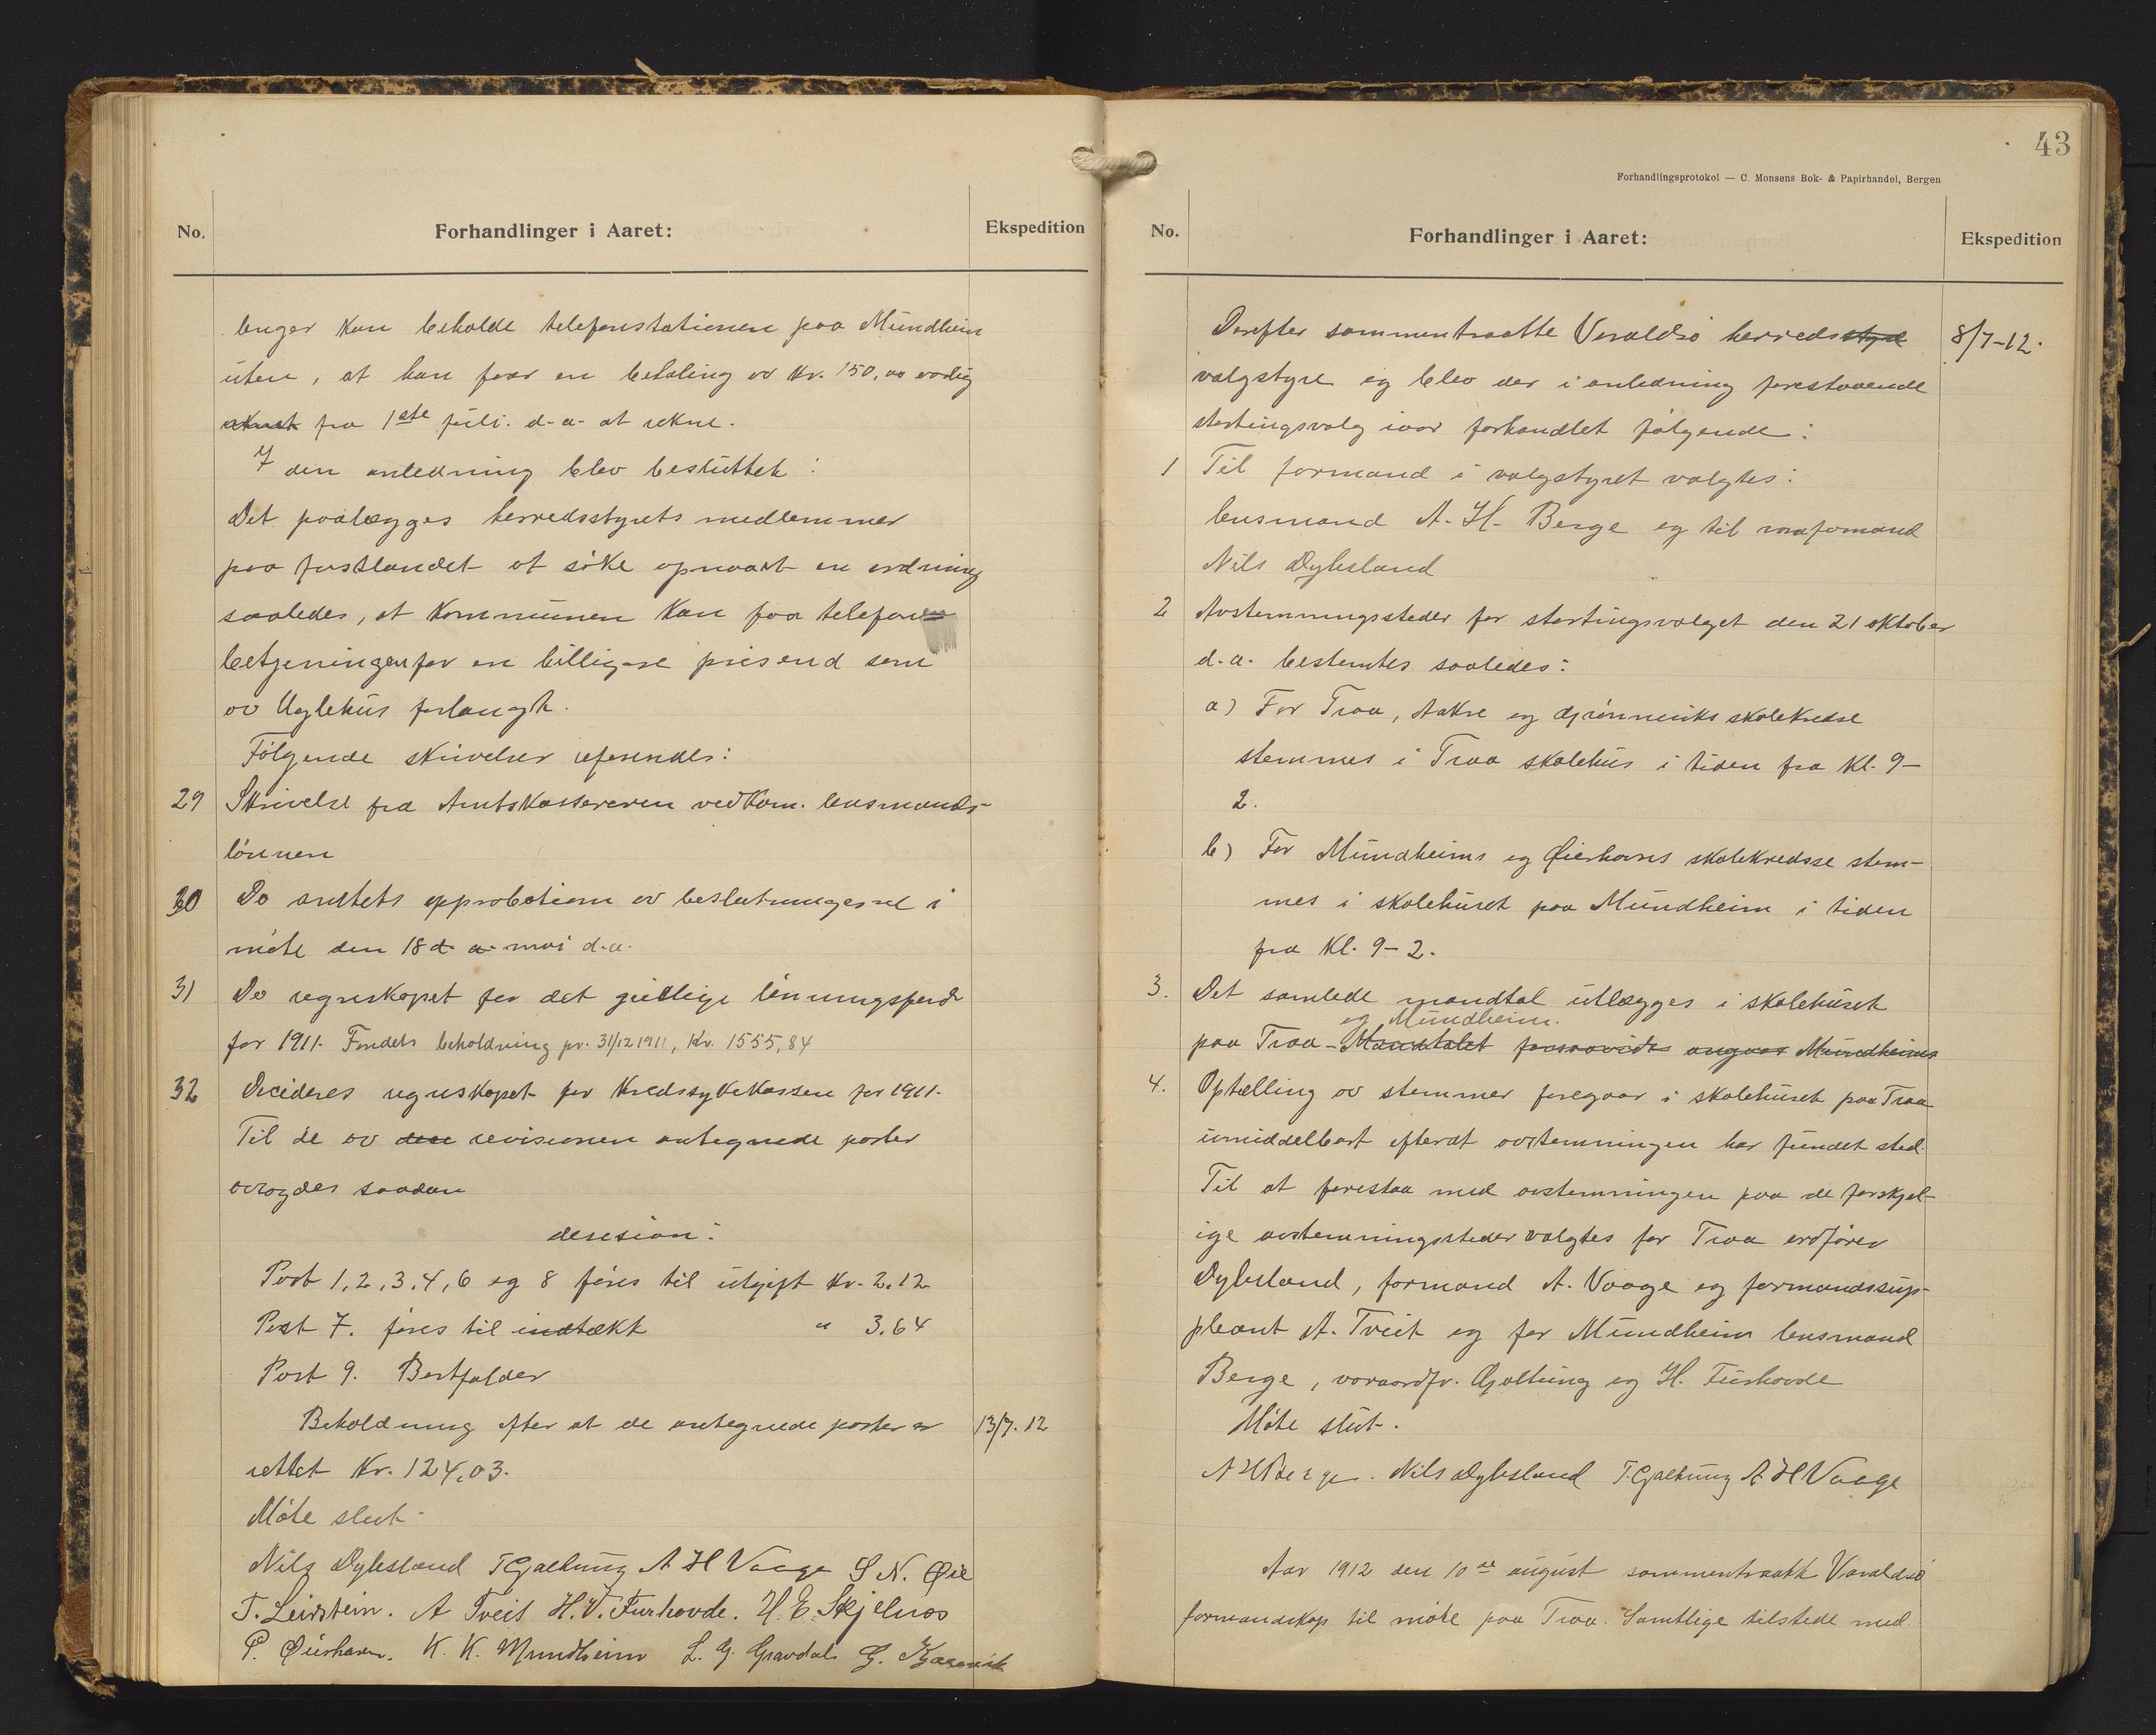 No.
Forhandlinger i Aaret:
Ekspedition
lenger kan beholde telefonstationen paa Mundheim
uten, at han faar en betaling av kr. 150,00 aarlig
fra 1ste juli. d.a. at rekne.
I den anledning blev besluttet:
Det paalægges herredsstyrets medlemmer
paa fastlandet at söke opnaad en ordning
saaledes, at kommunen kan faa telefon
betjeningen for en billigere pris end som
av Uglehus forlangt.
Følgende skrivelser refereredes:
29 Skrivelse fra Amtskassereren vedkom. lensmands-
lönnen
30 Do amtets approbation av beslutninger i
möte den 18 d. a. mai d.a.
31 Do regnskapet for det geistlige lönningsfond
for 1911. Fondets beholdning pr. 31/12 1911, Kr. 1555,84
32 Decideres regnskapet for Kredssykekassen for 1911.
Til de av den revisionen antegnede poster
avsagdes saadan
desision:
Post 1, 2, 3, 4, 6 og 8 föres til utgift Kr. 2.12
Post 7. föres til indtækt " 3.64
Post 9. Bortfalder
Beholdning efter at de antegnede poster er 13/7.12
rettet Kr. 124,03.
Möte slut.
Nils Dybesland T Gjaltung A H Vaage S N. Øie
T. Leirstein. A Tveit H. V. Furhovde. H. E. Skjelnes
P. Øierhavn. K. K. Mundheim L. G. Gravdal G.
43
Forhandlingsprotokol — C. Monsens Bok- & Papirhandel, Bergen
No.
Forhandlinger i Aaret:
Ekspedition
Derefter sammentraatte Varaldsö herredsstyre 8/7-12.
valgstyre og blev der i anledning forestaaende
stortingsvalg iaar forhandlet fölgende:
1 Til formand i valgstyret valgtes:
lensmand A. H. Berge og til varaformand
Nils Dybesland
2 Avstemningssteder for stortingsvalget den 21 oktober
d.a. bestemtes saaledes:
a) For Traa, Aakre og Gjönneviks skolekredse
stemmes i Traa skolehus i tiden fra Kl. 9-
2.
b) For Mundheims og Øierhavns skolekredsse stem-
mes i skolehuset paa Mundheim i tiden
fra Kl. 9-2.
3. Det samlede mandtal utlægges i skolehuset
og Mundheim.
paa Traa - Mandtalet forsaavidt angaar Mundheims
4. Optælling av stemmer foregaar i skolehuset paa Traa
umiddelbart efterat avstemningen har fundet sted.
Til at forestaa med avstemningen paa de forskjel-
ige avstemningssteder valgtes for Traa ordförer
Dybesland, formand A. Vaage og formandssup-
pleant A. Tveit og for Mundheim lensmand
Berge, varaordfr. Gjaltung og H. Furhovde
Möte slut.
A H Berge. Nils Dybesland T. Gjaltung A H Vaage
Aar 1912 den 10de august sammentraatte Varaldsö
formandskap til möte paa Traa. Samtlige tilstede med